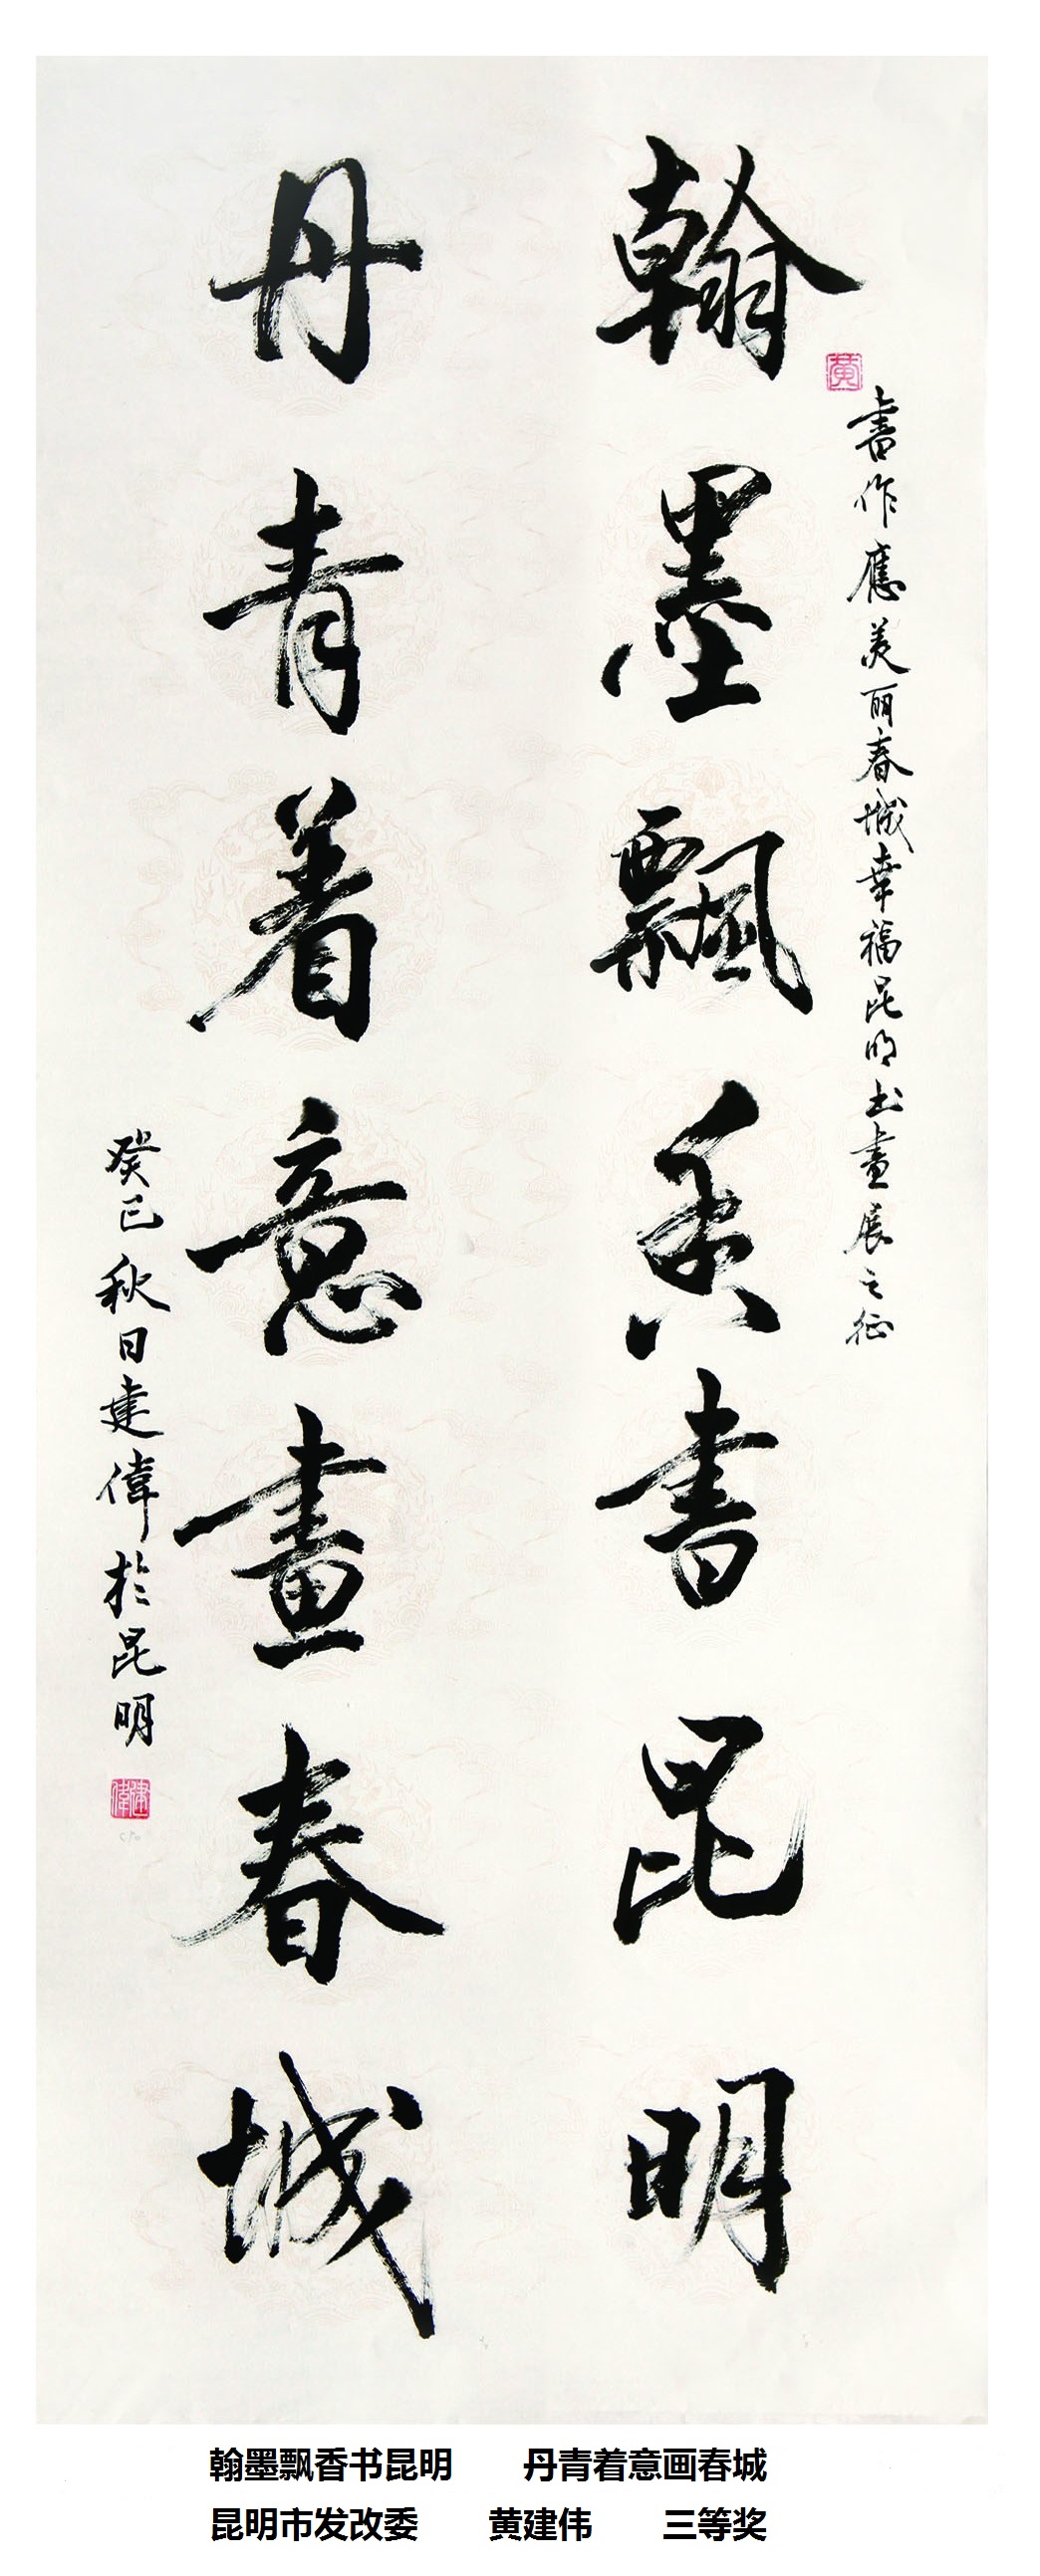 翰墨飘香書昆明
書作應美丽春城幸福昆明书畫展之征
丹青着意畫春城
癸巳秋日建偉於昆明
黄
建偉
翰墨飘香书昆明 丹青着意画春城
昆明市发改委 黄建伟 三等奖